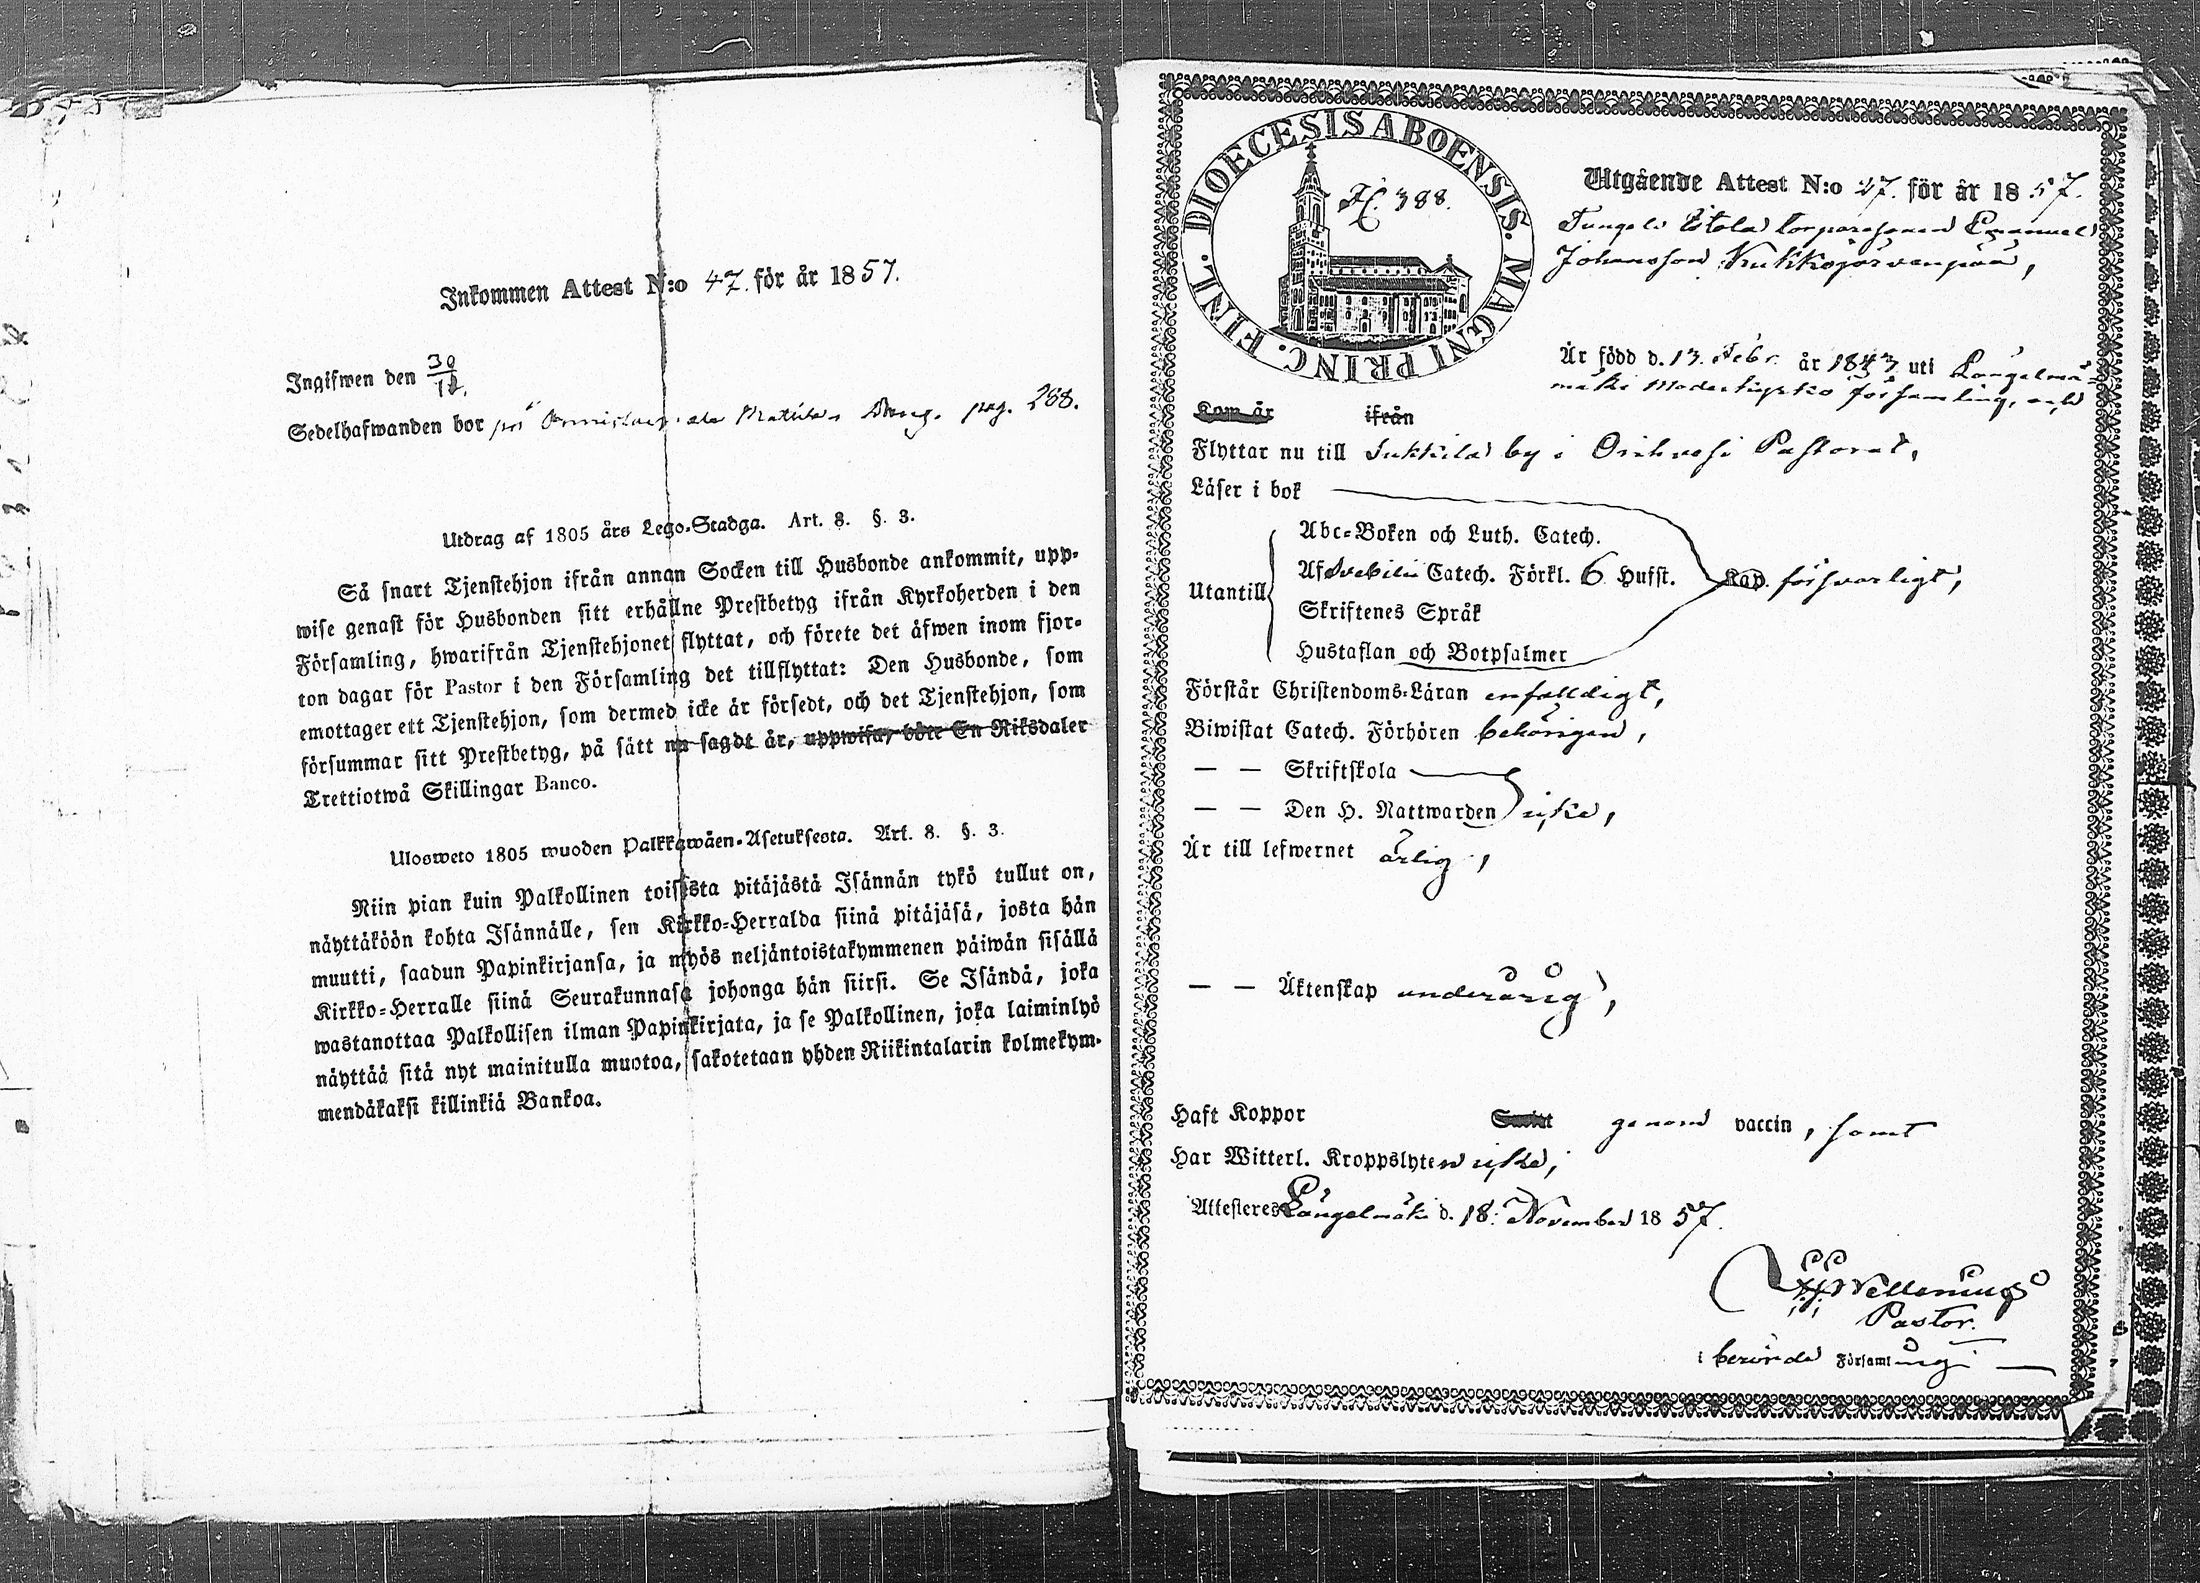 Inkommen Attest N:o 47. för år 1857.
Ingifwen den 30/12.
Sedelhafwanden bor på pag. 288.
Utdrag af 1805 års Lego-Stadga. Art. 8. §. 3.
Så snart Tjenstehjon ifrån annan Socken till Husbonde ankommit, upp-
wise genast för Husbonden sitt erhållne Prestbetyg ifrån Kyrkoherden i den
Församling, hwarifrån Tjenstehjonet flyttat, och förete det äfwen inom fjor-
ton dagar för Pastor i den Församling det tillflyttat: Den Husbonde, som
emottager ett Tjenstehjon, som dermed icke är försedt, och det Tjenstehjon, som
försummar sitt Prestbetyg, på sätt nu sagdt är, uppwisa, böte En Riksdaler
Trettiotwå Skillingar Banco.
Ulosweto 1805 wuoden Palkkawäen-Asetuksesta. Art. 8. §. 3.
Niin pian kuin Palkollinen toisesta pitäjästä Isännän tykö tullut on,
näyttäköön kohta Isännälle, sen Kirkko-Herralda siinä pitäjäsä, josta hän
muutti, saadun Papinkirjansa, ja myös neljäntoistakymmenen päiwän sisällä
Kirkko-Herralle siinä Seurakunnasa johonga hän siirsi. Se Isändä, joka
wastanottaa Palkollisen ilman Papinkirjata, ja se Palkollinen, joka laiminlyö
näyttää sitä nyt mainitulla muotoa, sakotetaan yhden Riikintalarin kolmekym-
mendäkaksi killinkiä Bankoa.
DIOECESIS ABOENSIS. MAGNI PRINC. FINL.
388.
Utgående Attest N:o 27. för år 1857.
Emanuel
Johansson Kukkojärvenpää,
Är född d. 13. Febr. år 1843 uti Längelmä-
mäki Moderkyrko församling, och
Kom år ifrån
Flyttar nu till Sukkila by i Orihvesi Pastorat,
Läser i bok
Abc-Boken och Luth. Catech.
Utantill Af Svebilii Catech. Förkl. 6 Hufst. Kap. försvarligt,
Skriftenes Språk
Hustaflan och Botpsalmer
Förstår Christendoms-Läran enfaldigt,
Biwistat Catech. Förhören behörigen,
— — Skriftskola
— — Den H. Nattwarden icke,
Är till lefwernet ärlig,
— — Äktenskap underårig,
Haft Koppor genom vaccin, samt
Har Witterl. Kroppslyten icke,
Attesteres Längelmäki d. 18. November 1857.
Wellenius
Pastor.
i berörde Församling